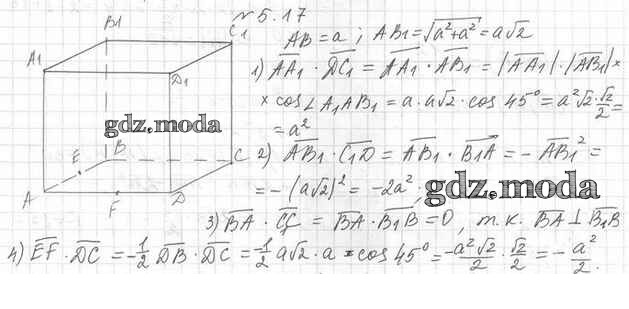 № 5.17
AB = a ; AB1 = √a²+a² = a√2
1) AA1 · DC1 = AA1 · AB1 = |AA1| · |AB1| ×
× cos∠A1AB1 = a · a√2 · cos 45° = a²√2 · √2/2 =
= a²
2) AB1 · C1D = AB1 · B1A = - AB1² =
= - (a√2)² = -2a² ;
3) BA · CC1 = BA · B1B = 0 , т.к. BA ⊥ B1B
4) EF · DC = -1/2 DB · DC = -1/2 a√2 · a · cos 45° = -a²√2/2 · √2/2 = - a²/2 .
B1
C1
A1
D1
gdz.moda
E
B
C
A
F
D
gdz.moda